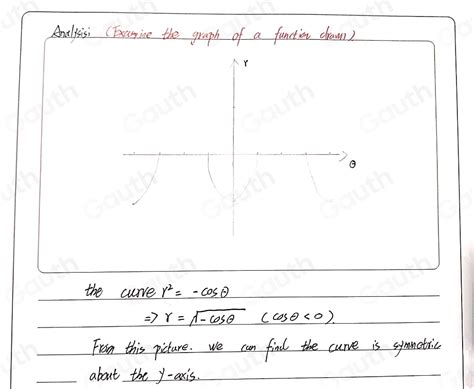 Analysis: (Examine the graph of a function drawn)
r
θ
the curve r² = -cosθ
=> r = √-cosθ (cosθ<0).
From this picture. we can find the curve is symmetric
about the y-axis.